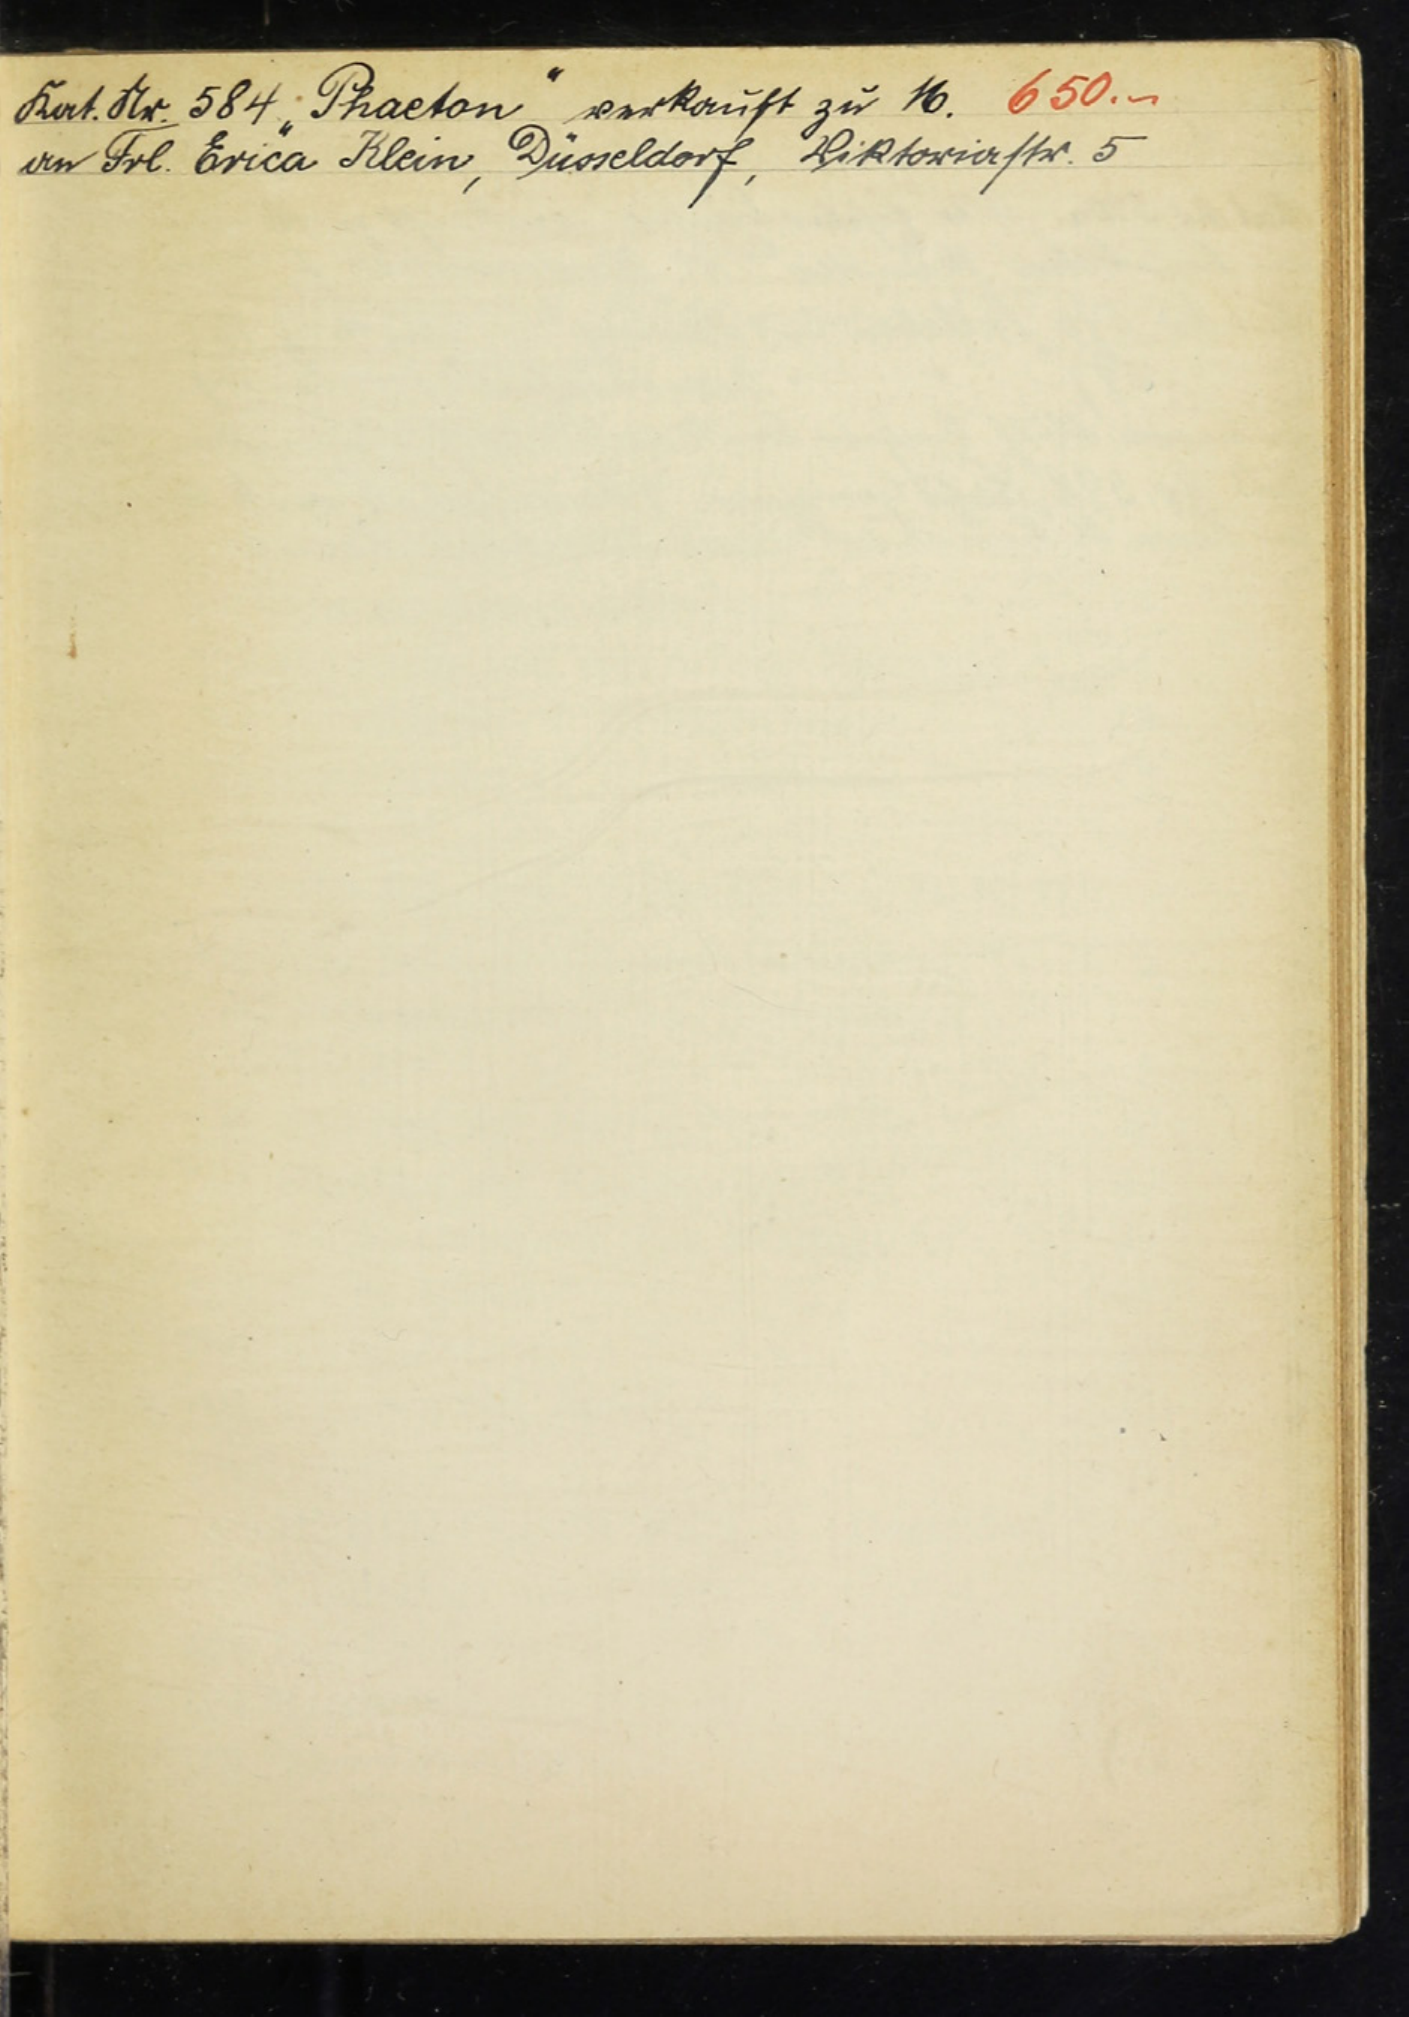 Kat. Nr. 584 „Phaeton“ verkauft zu M. 650.–
an Frl. Erica Klein, Düsseldorf, Viktoriastr. 5